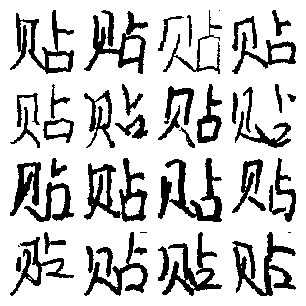 贴贴贴贴
贴贴贴贴
贴贴贴贴
贴贴贴贴